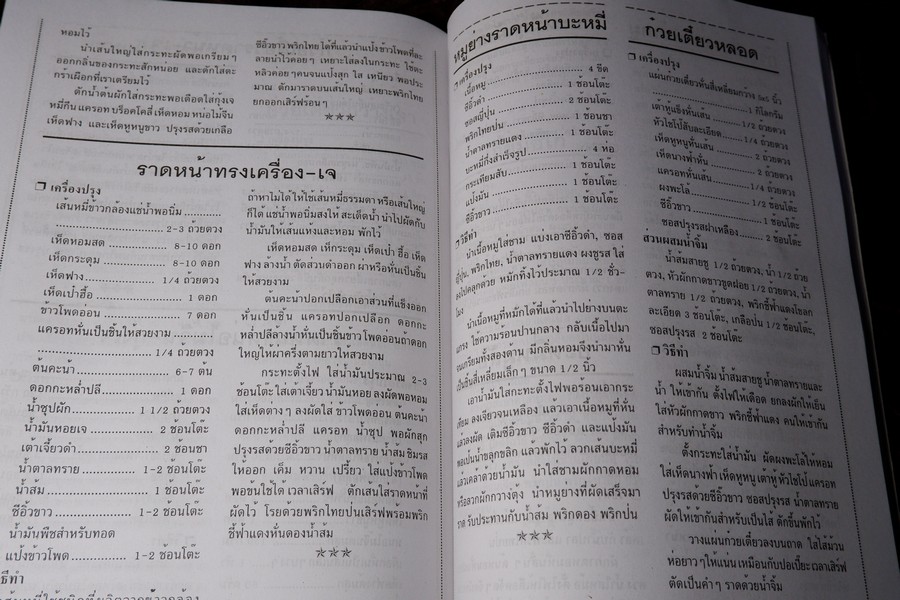 หอมไว้
นำเส้นใหญ่ใส่กระทะผัดพอเกรียม ๆ
ออกกลิ่นของกระทะสักหน่อย และตักใส่ตะ
กร้าเผือกที่เราเตรียมไว้
ตักน้ำต้นผักใส่กระทะพอเดือดใส่กุ้งเจ
หมี่กึน แครอท บร็อคโคลี่ เห็ดหอม หน่อไม้จีน
เห็ดฟาง และเห็ดหูหนูขาว ปรุงรสด้วยเกลือ
ซีอิ๊วขาว พริกไทย ได้ที่แล้วนำแป้งข้าวโพดที่ละ
ลายน้ำไว้ค่อย ๆ เหยาะใส่ลงในกระทะ ใช้ตะ
หลิวค่อย ๆ คนจนแป้งสุก ใส เหนียว พอประ
มาณ ตักมาราดบนเส้นใหญ่ เหยาะพริกไทย
ยกออกเสิร์ฟร้อน ๆ
ราดหน้าทรงเครื่อง-เจ
เครื่องปรุง
เส้นหมี่ข้าวกล้องแช่น้ำพอนิ่ม ..........
.......... 2-3 ถ้วยตวง
เห็ดหอมสด .......... 8-10 ดอก
เห็ดกระดุม .......... 8-10 ดอก
เห็ดฟาง .......... 1/4 ถ้วยตวง
เห็ดเป๋าฮื้อ .......... 1 ดอก
ข้าวโพดอ่อน .......... 7 ดอก
แครอทหั่นเป็นชิ้นให้สวยงาม ..........
.......... 1/4 ถ้วยตวง
ต้นคะน้า .......... 6-7 ต้น
ดอกกะหล่ำปลี .......... 1 ดอก
น้ำซุปผัก .......... 1 1/2 ถ้วยตวง
น้ำมันหอยเจ .......... 2 ช้อนโต๊ะ
เต้าเจี้ยวดำ .......... 2 ช้อนชา
น้ำตาลทราย .......... 1-2 ช้อนโต๊ะ
น้ำส้ม .......... 1 ช้อนโต๊ะ
ซีอิ๊วขาว .......... 1-2 ช้อนโต๊ะ
น้ำมันพืชสำหรับทอด
แป้งข้าวโพด .......... 1-2 ช้อนโต๊ะ
ถ้าหาไม่ได้ ให้ใช้เส้นหมี่ธรรมดา หรือเส้นใหญ่
ก็ได้ แช่น้ำพอนิ่มสงให้ สะเด็ดน้ำ นำไปผัดกับ
น้ำมันให้เส้นแห้งและหอม พักไว้
เห็ดหอมสด เห็กระดุม เห็ดเป๋า ฮื้อ เห็ด
ฟาง ล้างน้ำ ตัดส่วนดำออก ผ่าหรือหั่นเป็นชิ้น
ให้สวยงาม
ต้นคะน้าปอกเปลือกเอาส่วนที่แข็งออก
หั่นเป็นชิ้น แครอทปอกเปลือก ดอกกะ
หล่ำปลีล้างน้ำหั่นเป็นชิ้นข้าวโพดอ่อนถ้าดอก
ใหญ่ให้ผ่าครึ่งตามยาวให้สวยงาม
กระทะตั้งไฟ ใส่น้ำมันประมาณ 2-3
ช้อนโต๊ะ ใส่เต้าเจี้ยว น้ำมันหอย ลงผัดพอหอม
ใส่เห็ดต่าง ๆ ลงผัดใส่ ข้าวโพดอ่อน ต้นคะน้า
ดอกกะหล่ำปลี แครอท น้ำซุป พอผักสุก
ปรุงรสด้วยซีอิ๊วขาว น้ำตาลทราย น้ำส้ม ชิมรส
ให้ออก เค็ม หวาน เปรี้ยว ใส่แป้งข้าวโพด
พอข้นใช้ได้ เวลาเสิร์ฟ ตักเส้นใส่ราดหน้าที่
ผัดไว้ โรยด้วยพริกไทยป่นเสิร์ฟพร้อมพริก
ชี้ฟ้าแดงหั่นดองน้ำส้ม
หมูย่างราดหน้าบะหมี่
เครื่องปรุง
เนื้อหมู .......... 4 ขีด
ซีอิ๊วดำ .......... 1 ช้อนโต๊ะ
ซอสญี่ปุ่น .......... 2 ช้อนโต๊ะ
พริกไทยป่น .......... 1 ช้อนชา
น้ำตาลทรายแดง .......... 1 ช้อนโต๊ะ
บะหมี่กึ่งสำเร็จรูป .......... 4 ห่อ
กระเทียมสับ .......... 1 ช้อนโต๊ะ
แป้งมัน .......... 1 ช้อนโต๊ะ
ซีอิ๊วขาว .......... 1 ช้อนโต๊ะ
วิธีทำ
นำเนื้อหมูใส่ชาม แบ่งเอาซีอิ๊วดำ, ซอส
ญี่ปุ่น, พริกไทย, น้ำตาลทรายแดง ผงชูรส ใส่
ลงไปคลุกด้วย หมักทิ้งไว้ประมาณ 1/2 ชั่ว-
โมง
นำเนื้อหมูที่หมักได้ที่แล้วนำไปย่างบนตะ
แกรง ใช้ความร้อนปานกลาง กลับเนื้อไปมา
จนเกรียมทั้งสองด้าน มีกลิ่นหอมจึงนำมาหั่น
เป็นชิ้นสี่เหลี่ยมเล็ก ๆ ขนาด 1/2 นิ้ว
เอาน้ำมันใส่กระทะตั้งไฟพอร้อนเอากระ
เทียม ลงเจียวจนเหลือง แล้วเอาเนื้อหมูที่หั่น
แล้วลงผัด เติมซีอิ๊วขาว ซีอิ๊วดำ และแป้งมัน
พอเป็นน้ำขลุกขลิก แล้วพักไว้ ลวกเส้นบะหมี่
แล้วเคล้าด้วยน้ำมัน นำใส่ชามผักกาดหอม
หรือลวกผักกวางตุ้ง นำหมูย่างที่ผัดเสร็จมา
ราด รับประทานกับน้ำส้ม พริกดอง พริกป่น
ก๋วยเตี๋ยวหลอด
เครื่องปรุง
แผ่นก๋วยเตี๋ยวหั่นสี่เหลี่ยมกว้าง 5x5 นิ้ว
.......... 1 กิโลกรัม
เต้าหู้แข็งหั่นเส้น .......... 1/2 ถ้วยตวง
หัวไชโป๊สับละเอียด .......... 1/4 ถ้วยตวง
เห็ดหูหนูหั่นเส้น .......... 2 ถ้วยตวง
เห็ดนางฟ้าหั่น .......... 2 ถ้วยตวง
แครอทหั่นเส้น .......... 1/4 ถ้วยตวง
ผงพะโล้ .......... 1/2 ช้อนโต๊ะ
ซีอิ๊วขาว .......... 1 ช้อนโต๊ะ
ซอสปรุงรสฝาเหลือง .......... 2 ช้อนโต๊ะ
ส่วนผสมน้ำจิ้ม
น้ำส้มสายชู 1/2 ถ้วยตวง, น้ำ 1/2 ถ้วย
ตวง, หัวผักกาดขาวขูดฝอย 1/2 ถ้วยตวง, น้ำ
ตาลทราย 1/2 ถ้วยตวง, พริกชี้ฟ้าแดงโขลก
ละเอียด 3 ช้อนโต๊ะ, เกลือป่น 1/2 ช้อนโต๊ะ,
ซอสปรุงรส 2 ช้อนโต๊ะ
วิธีทำ
ผสมน้ำจิ้ม น้ำส้มสายชู น้ำตาลทรายและ
น้ำ ให้เข้ากัน ตั้งไฟให้เดือด ยกลงผักให้เย็น
ใส่หัวผักกาดขาว พริกชี้ฟ้าแดง คนให้เข้ากัน
สำหรับทำน้ำจิ้ม
ตั้งกระทะใส่น้ำมัน ผัดผงพะโล้ให้หอม
ใส่เห็ดนางฟ้า เห็ดหูหนู เต้าหู้ หัวไชโป๊ แครอท
ปรุงรสด้วยซีอิ๊วขาว ซอสปรุงรส น้ำตาลทราย
ผัดให้เข้ากันสำหรับเป็นไส้ ตักขึ้นพักไว้
วางแผ่นก๋วยเตี๋ยวลงบนถาด ใส่ไส้ม้วน
ห่อยาว ๆ ให้แน่น เหมือนกับปอเปี๊ยะ เวลาเสิร์ฟ
ตัดเป็นคำ ๆ ราดด้วยน้ำจิ้ม